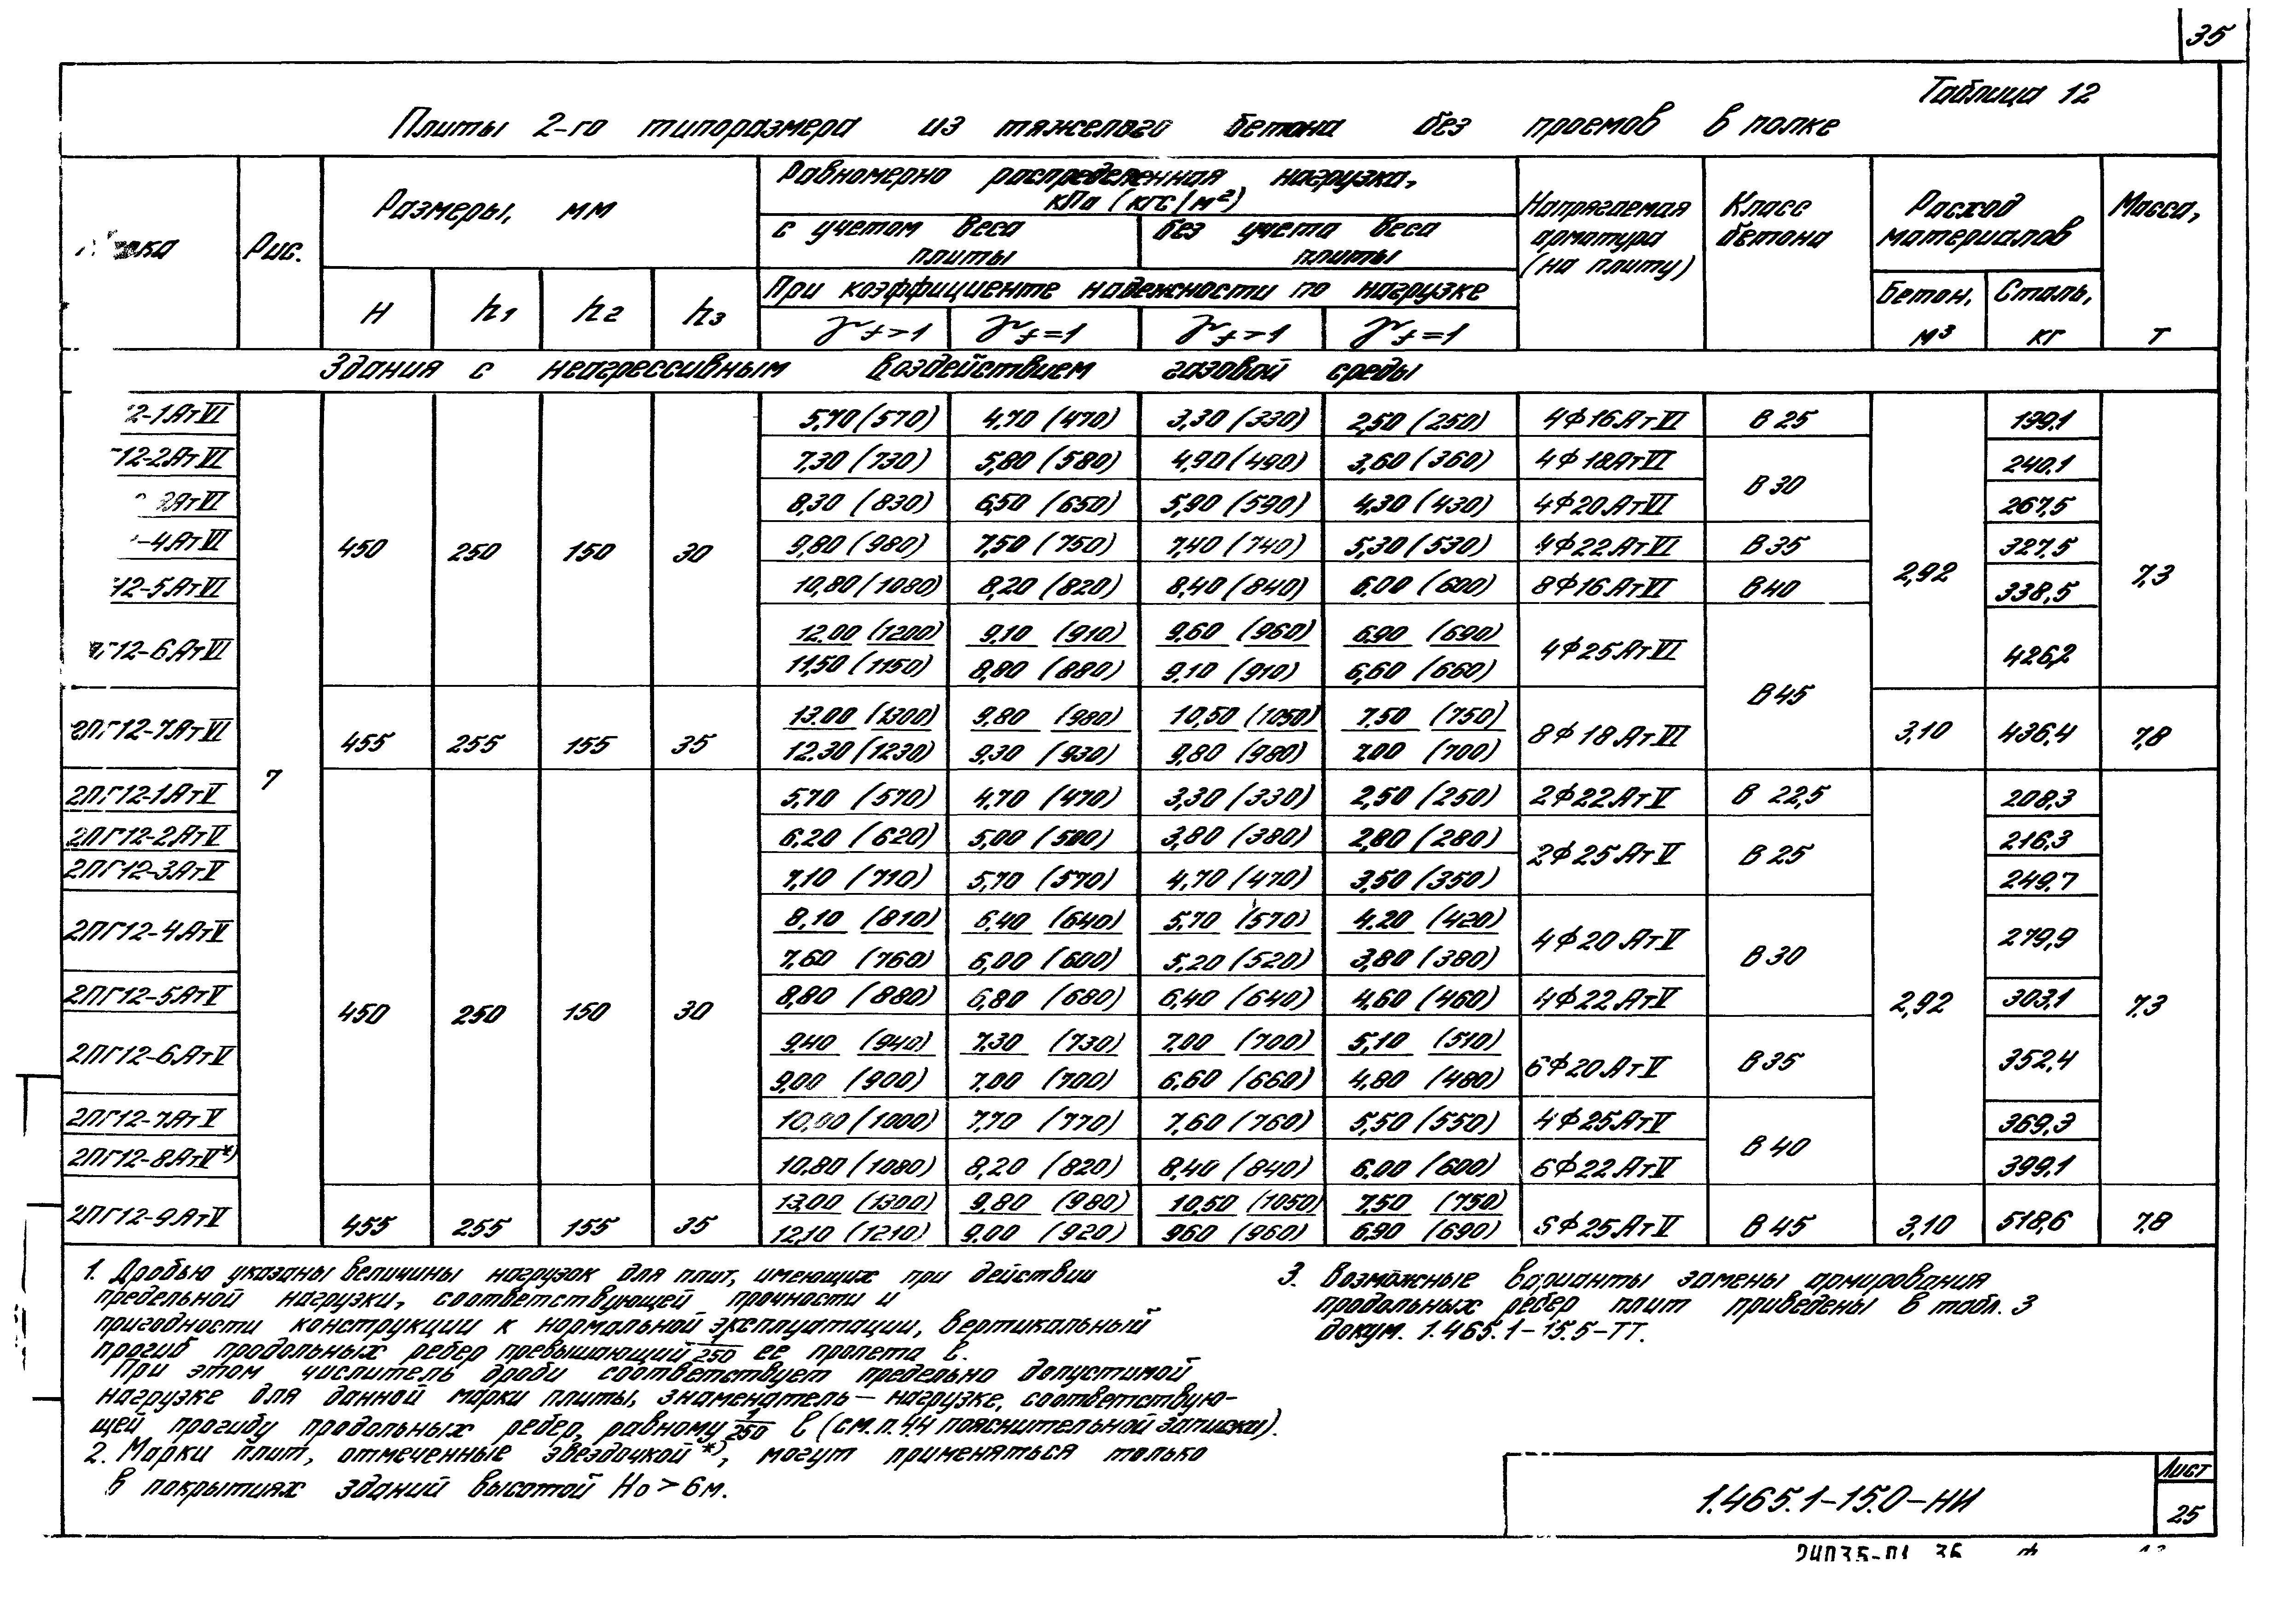 35
Таблица 12
Плиты 2-го типоразмера из тяжелого бетона без проемов в полке
Рис.
Размеры, мм
Равномерно распределенная нагрузка, кПа (кгс/м²)
с учетом веса плиты
без учета веса плиты
При коэффициенте надежности по нагрузке
Напрягаемая арматура (на плиту)
Класс бетона
Расход материалов
Масса, т
H h1 h2 h3
γf>1 γf=1 γf>1 γf=1
Бетон, м³ Сталь, кг
Здания с неагрессивным воздействием газовой среды
2-1АтVI 5,70 (570) 4,70 (470) 3,30 (330) 2,50 (250) 4Ф16АтVI В 25 199,1
12-2АтVI 7,30 (730) 5,80 (580) 4,90 (490) 3,60 (360) 4Ф18АтVI В 30 240,1
3АтVI 8,30 (830) 6,50 (650) 5,90 (590) 4,30 (430) 4Ф20АтVI 267,5
-4АтVI 450 250 150 30 9,80 (980) 7,50 (750) 7,40 (740) 5,30 (530) 4Ф22АтVI В 35 2,92 327,5 7,3
12-5АтVI 10,80 (1080) 8,20 (820) 8,40 (840) 6,00 (600) 8Ф16АтVI В 40 338,5
12-6АтVI 12,00 (1200) 9,10 (910) 9,60 (960) 6,90 (690) 4Ф25АтVI 426,2
11,50 (1150) 8,80 (880) 9,10 (910) 6,60 (660) В 45
2ПГ12-7АтVI 455 255 155 35 13,00 (1300) 9,80 (980) 10,50 (1050) 7,50 (750) 8Ф18АтVI 3,10 436,4 7,8
12,30 (1230) 9,30 (930) 9,80 (980) 7,00 (700)
7
2ПГ12-1АтV 5,70 (570) 4,70 (470) 3,30 (330) 2,50 (250) 2Ф22АтV В 22,5 208,3
2ПГ12-2АтV 6,20 (620) 5,00 (500) 3,80 (380) 2,80 (280) 2Ф25АтV В 25 216,3
2ПГ12-3АтV 7,10 (710) 5,70 (570) 4,70 (470) 3,50 (350) 249,7
2ПГ12-4АтV 8,10 (810) 6,40 (640) 5,70 (570) 4,20 (420) 4Ф20АтV В 30 279,9
7,60 (760) 6,00 (600) 5,20 (520) 3,80 (380)
2ПГ12-5АтV 450 250 150 30 8,80 (880) 6,80 (680) 6,40 (640) 4,60 (460) 4Ф22АтV 2,92 303,1 7,3
2ПГ12-6АтV 9,40 (940) 7,30 (730) 7,00 (700) 5,10 (510) 6Ф20АтV В 35 352,4
9,00 (900) 7,00 (700) 6,60 (660) 4,80 (480)
2ПГ12-7АтV 10,00 (1000) 7,70 (770) 7,60 (760) 5,50 (550) 4Ф25АтV В 40 369,3
2ПГ12-8АтV*) 10,80 (1080) 8,20 (820) 8,40 (840) 6,00 (600) 6Ф22АтV 399,1
2ПГ12-9АтV 455 255 155 35 13,00 (1300) 9,80 (980) 10,50 (1050) 7,50 (750) В 45 3,10 518,6 7,8
12,10 (1210) 9,00 (920) 960 (960) 6,90 (690)
1. Дробью указаны величины нагрузок для плит, имеющих при действии
предельной нагрузки, соответствующей прочности и
пригодности конструкции к нормальной эксплуатации, вертикальный
прогиб продольных ребер превышающий 1/250 ее пролета ℓ.
При этом числитель дроби соответствует предельно допустимой
нагрузке для данной марки плиты, знаменатель — нагрузке, соответствую-
щей прогибу продольных ребер, равному 1/250 ℓ (см. п. 4.4 пояснительной записки).
2. Марки плит, отмеченные звездочкой *), могут применяться только
в покрытиях зданий высотой Но > 6м.
3. Возможные варианты замены армирования
продольных ребер плит приведены в табл. 3
докум. 1.465.1-15.5-ТТ.
1.465.1-15.0-НИ
Лист
25
24035-01 36